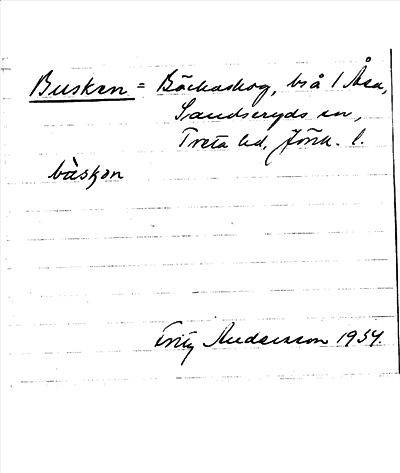 Busken = Bäckaskog, bså 1 Åsa,
Sandseryds sn,
Tveta hd, Jönk. l.
bàskən
Fritz Andersson 1954.